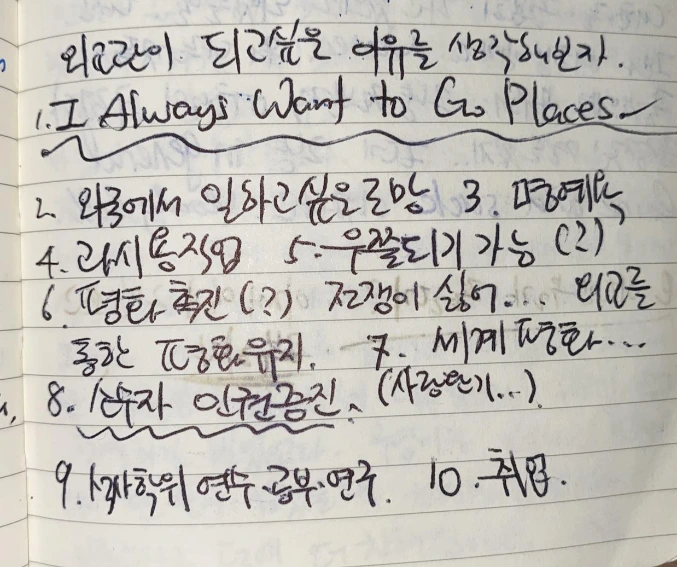 외교관이 되고싶은 이유를 생각해본자.
1. I Always Want to Go Places
2. 외국에서 일하고싶은로망 3. 명예욕
4. 과시용직업 5. 우쭐되기 가능(?)
6. 평화 촉진(?) 전쟁이 싫어... 외교를
통한 평화유지. 7. 세계평화...
8. 인권증진. (사랑받기...)
9. 석사학위 연수 공부·연구. 10. 취업.